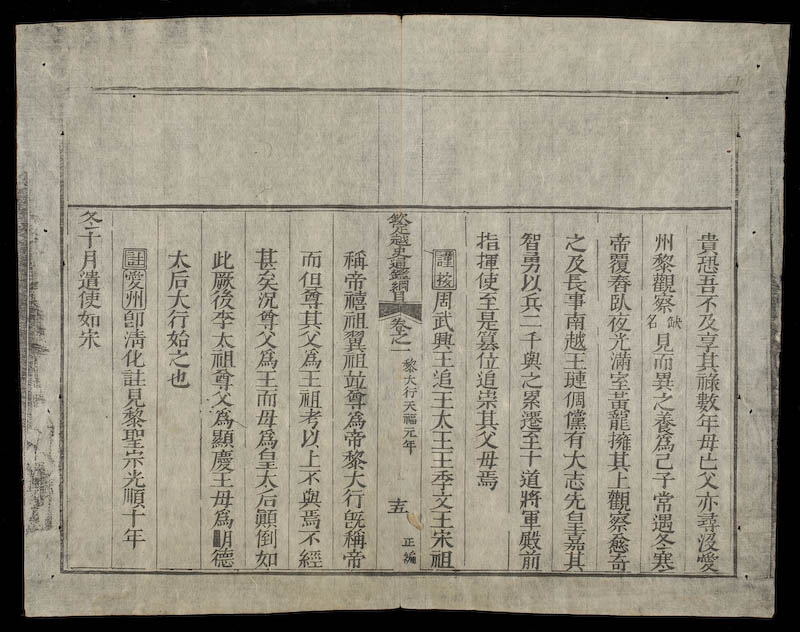 貴恐吾不及享其祿數年母亡父亦尋沒愛
州黎觀察缺名見而異之養爲己子常遇冬寒
帝覆舂臥夜光滿室黃龍擁其上觀察愈奇
之及長事南越王璉倜儻有大志先皇嘉其
智勇以兵二千與之累遷至十道將軍殿前
指揮使至是篡位追崇其父母焉
謹按周武興王追王太王王季文王宋祖
欽定越史通鑑綱目 卷之一 黎大行天福元年 十五 正編
稱帝禧祖翼祖竝尊爲帝黎大行旣稱帝
而但尊其父爲王祖考以上不與焉不經
甚矣況尊父爲王而母爲皇太后顚倒如
此厥後李太祖尊父爲顯慶王母爲明德
太后大行始之也
註愛州卽淸化註見黎聖宗光順十年
冬十月遣使如宋